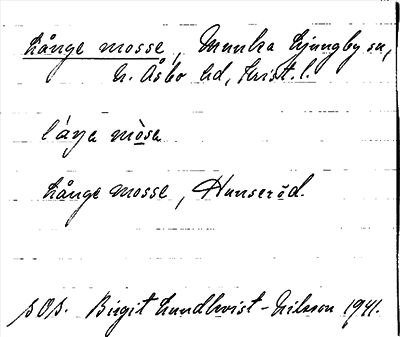 Långe mosse, Munka Ljungby sn,
N. Åsbo hd, Krist. l.
låŋa mòsa
Långe mosse, Hunseröd.
SOS. Birgit Lundkvist-Nilsson 1941.